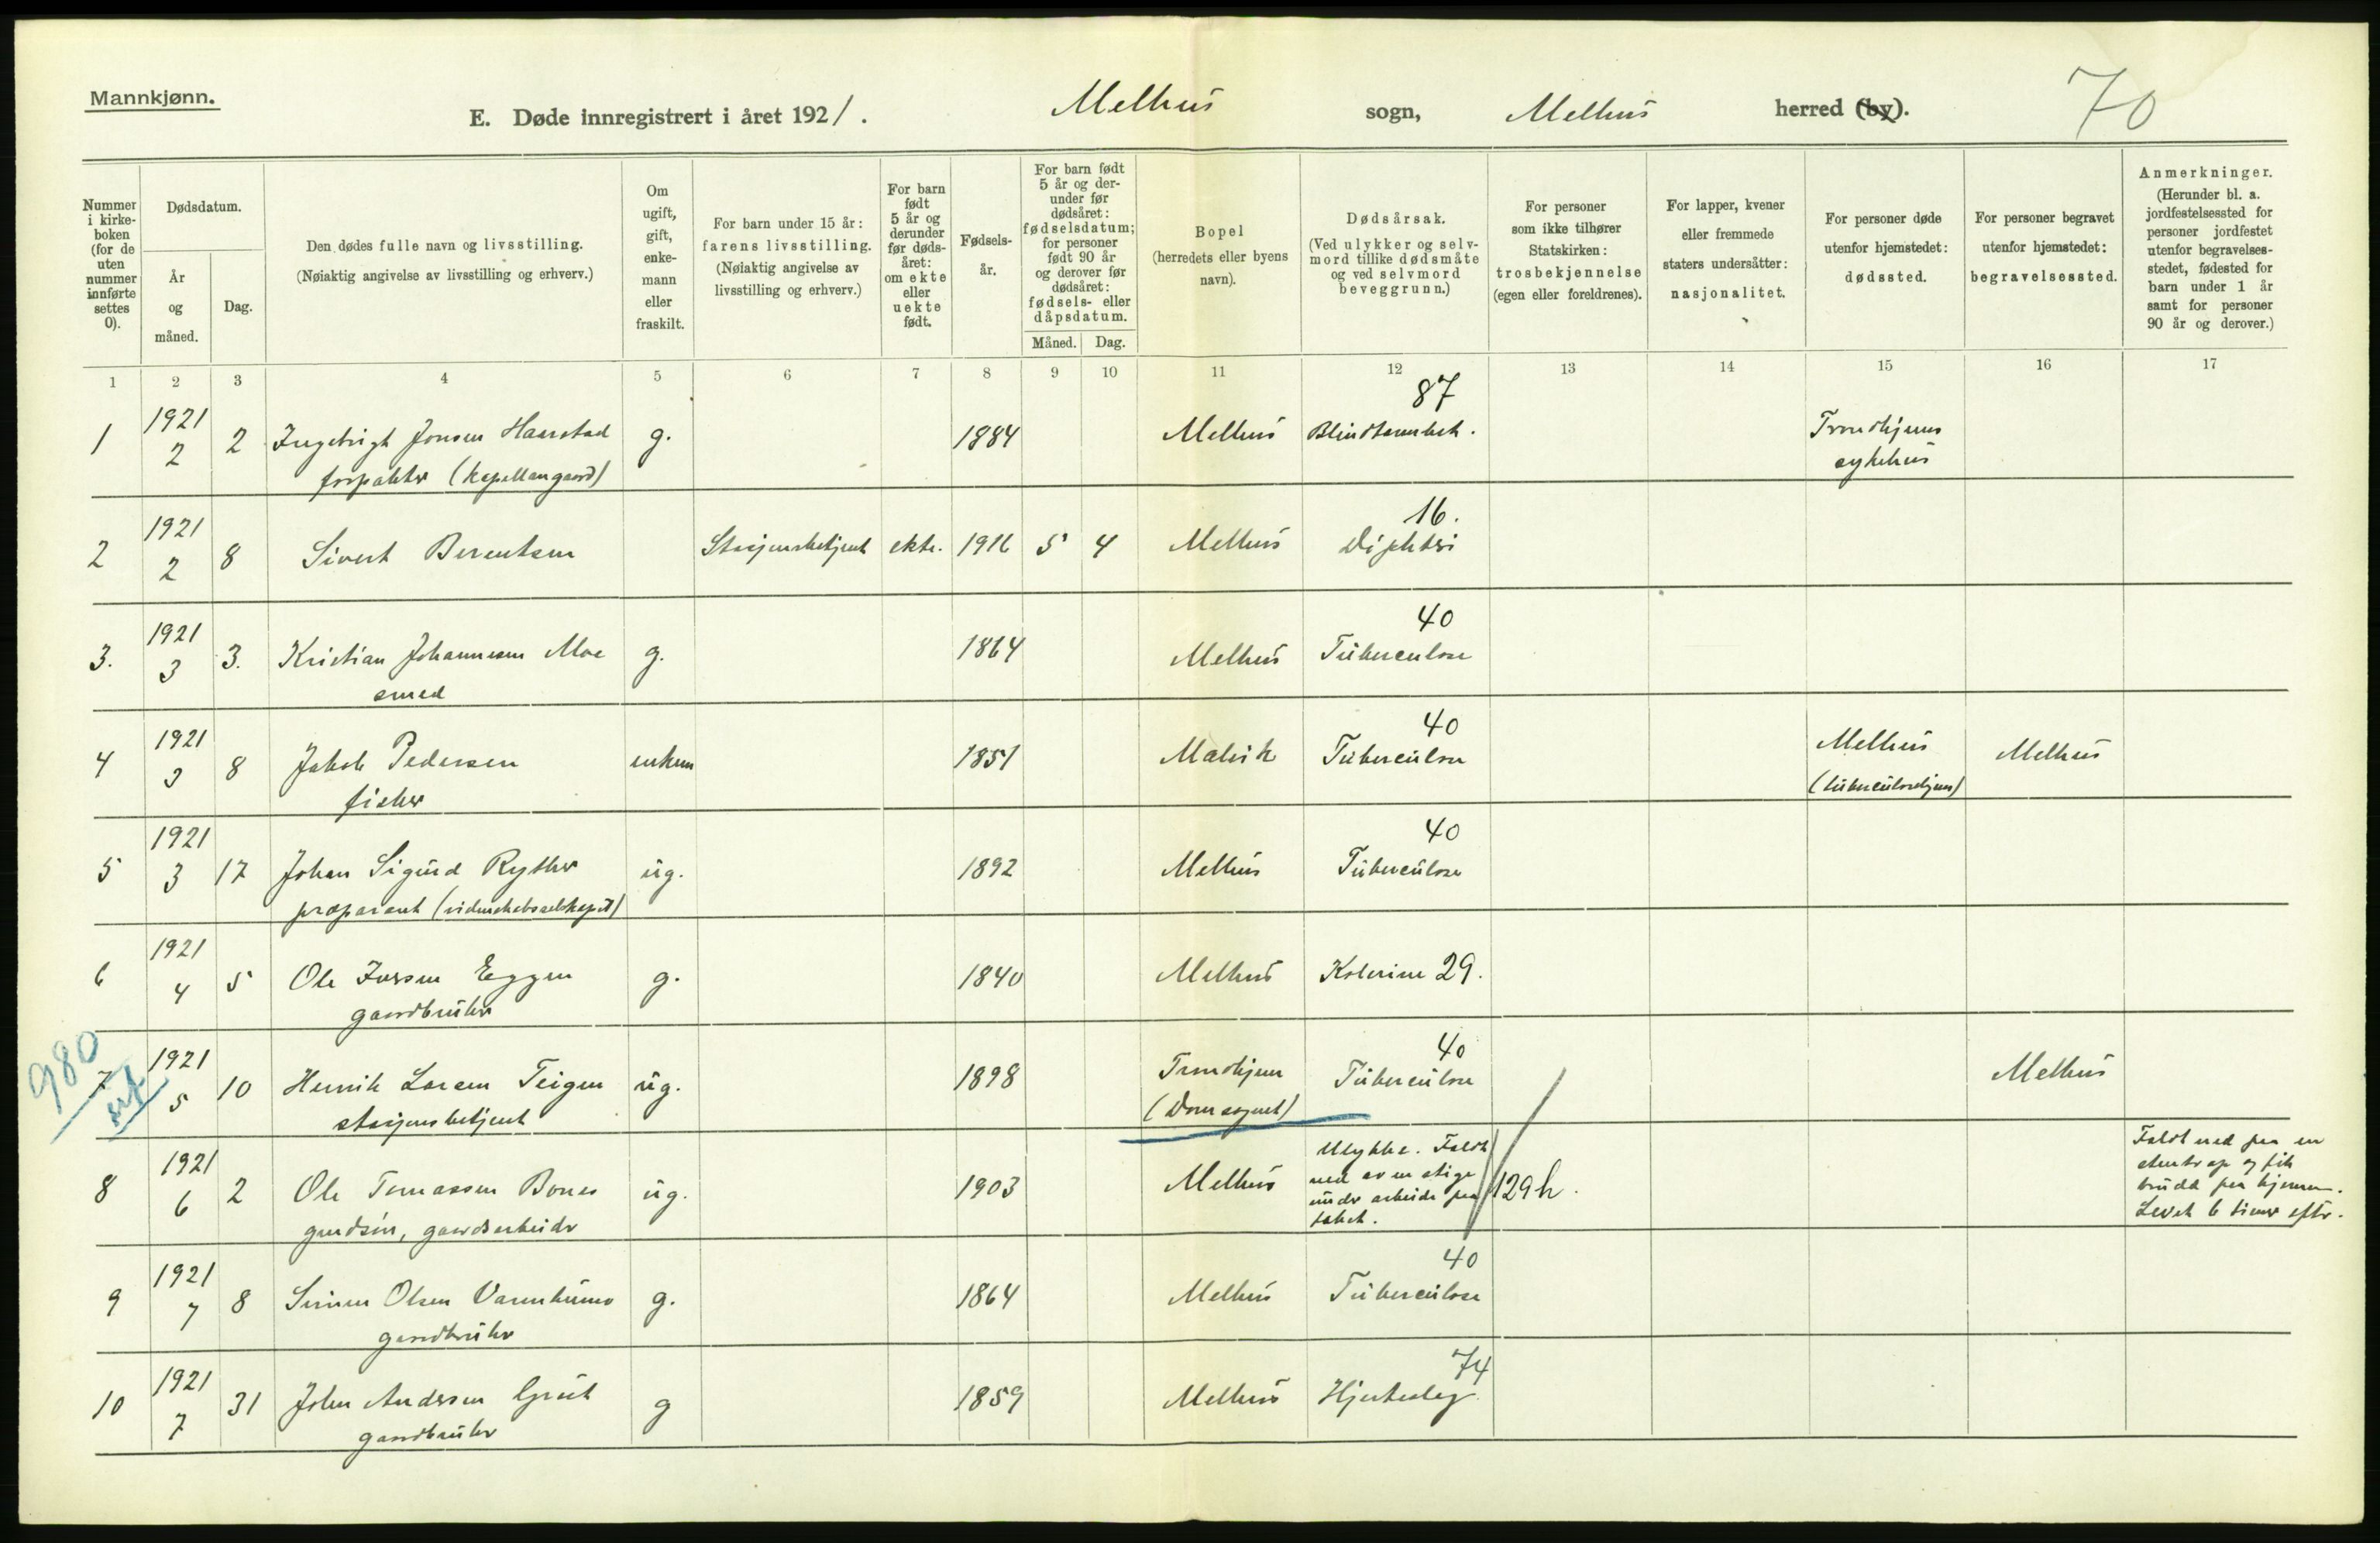 Mannkjønn.
E. Døde innregistrert i året 1921. Melhus sogn, Melhus herred (by). 70
Nummer i kirkeboken (for de uten nummer innførte settes 0).
Dødsdatum.
År og måned.
Dag.
Den dødes fulle navn og livsstilling.
(Nøiaktig angivelse av livsstilling og erhverv.)
Om ugift, gift, enkemann eller fraskilt.
For barn under 15 år: farens livsstilling.
(Nøiaktig angivelse av livsstilling og erhverv.)
For barn født 5 år og derunder før dødsåret: om ekte eller uekte født.
Fødselsår.
For barn født 5 år og derunder før dødsåret: fødselsdatum; for personer født 90 år og derover før dødsåret: fødsels- eller dåpsdatum.
Måned. Dag.
Bopel
(herredets eller byens navn).
Dødsårsak.
(Ved ulykker og selvmord tillike dødsmåte og ved selvmord beveggrunn.)
For personer som ikke tilhører Statskirken: trosbekjennelse (egen eller foreldrenes).
For lapper, kvener eller fremmede staters undersåtter: nasjonalitet.
For personer døde utenfor hjemstedet: dødssted.
For personer begravet utenfor hjemstedet: begravelsessted.
Anmerkninger.
(Herunder bl. a. jordfestelsessted for personer jordfestet utenfor begravelsesstedet, fødested for barn under 1 år samt for personer 90 år og derover.)
1 2 3 4 5 6 7 8 9 10 11 12 13 14 15 16 17
1 1921 2 2 Ingebrigt Jonsen Haarstad g. 1884 Melhus 87 Blindtarmbet. Trondhjems sykehus
forpakter (Kapellangaard)
2 1921 2 8 Sivert Berentsen Stasjonsbetjent ekte. 1916 5 4 Melhus 16. Difteri
3. 1921 3 3. Kristian Johannesen Moe g. 1864 Melhus 40 Tuberculose
smed
4 1921 3 8 Jakob Pedersen enkem 1851 Malvik 40 Tuberculose Melhus Melhus
fisker (tuberculosehjem)
5 1921 3 17 Johan Sigurd Rythter ug. 1892 Melhus 40 Tuberculose
præparant (videnskabsselskapet)
6 1921 4 5 Ole Iversen Eggen g. 1840 Melhus Kolerine 29.
gaardbruker
980
7 1921 5 10 Henrik Larsen Teigen ug. 1898 Trondhjem 40 Tuberculose Melhus
stasjonsbetjent
8 1921 6 2 Ole Tomassen Bones ug. 1903 Melhus Ulykke. Faldt ned av en stige under arbeide paa taket. 129h. Faldt ned paa en stentrap og fik brudd paa hjernen. Levet 6 timer efter.
gaardsarbeider
9 1921 7 8 Olsen g. 1864 Melhus 40 Tuberculose
gaardbruker
10 1921 7 31 John Andersen g 1859 Melhus 74 Hjerteslag
gaardbruker